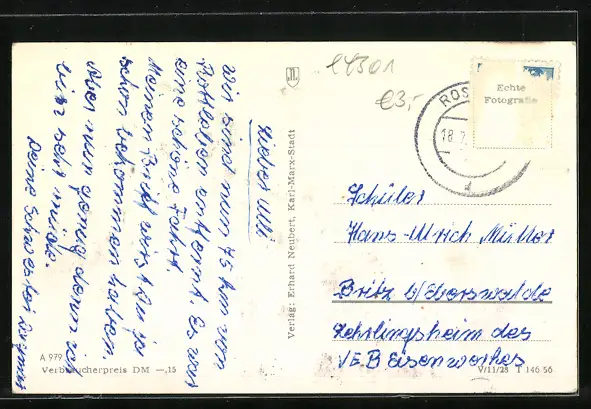 Lieber Ulli
Wir sind nun 75 km von
entfernt. Es war
eine schöne Fahrt.
Meinen Brief wirst Du ja
schon bekommen haben.
Aber nun genug denn ich
bin sehr müde.
Deine Schwester
Verlag: Erhard Neubert, Karl-Marx-Stadt
L4301
€3,-
ROS
18.7.
Echte
Fotografie
Schüler
Hans-Ulrich Müller
Britz b/Eberswalde
Lehrlingsheim des
VEB Eisenwerkes
A 979
Verbraucherpreis DM —,15
V/11/28 T 146 56